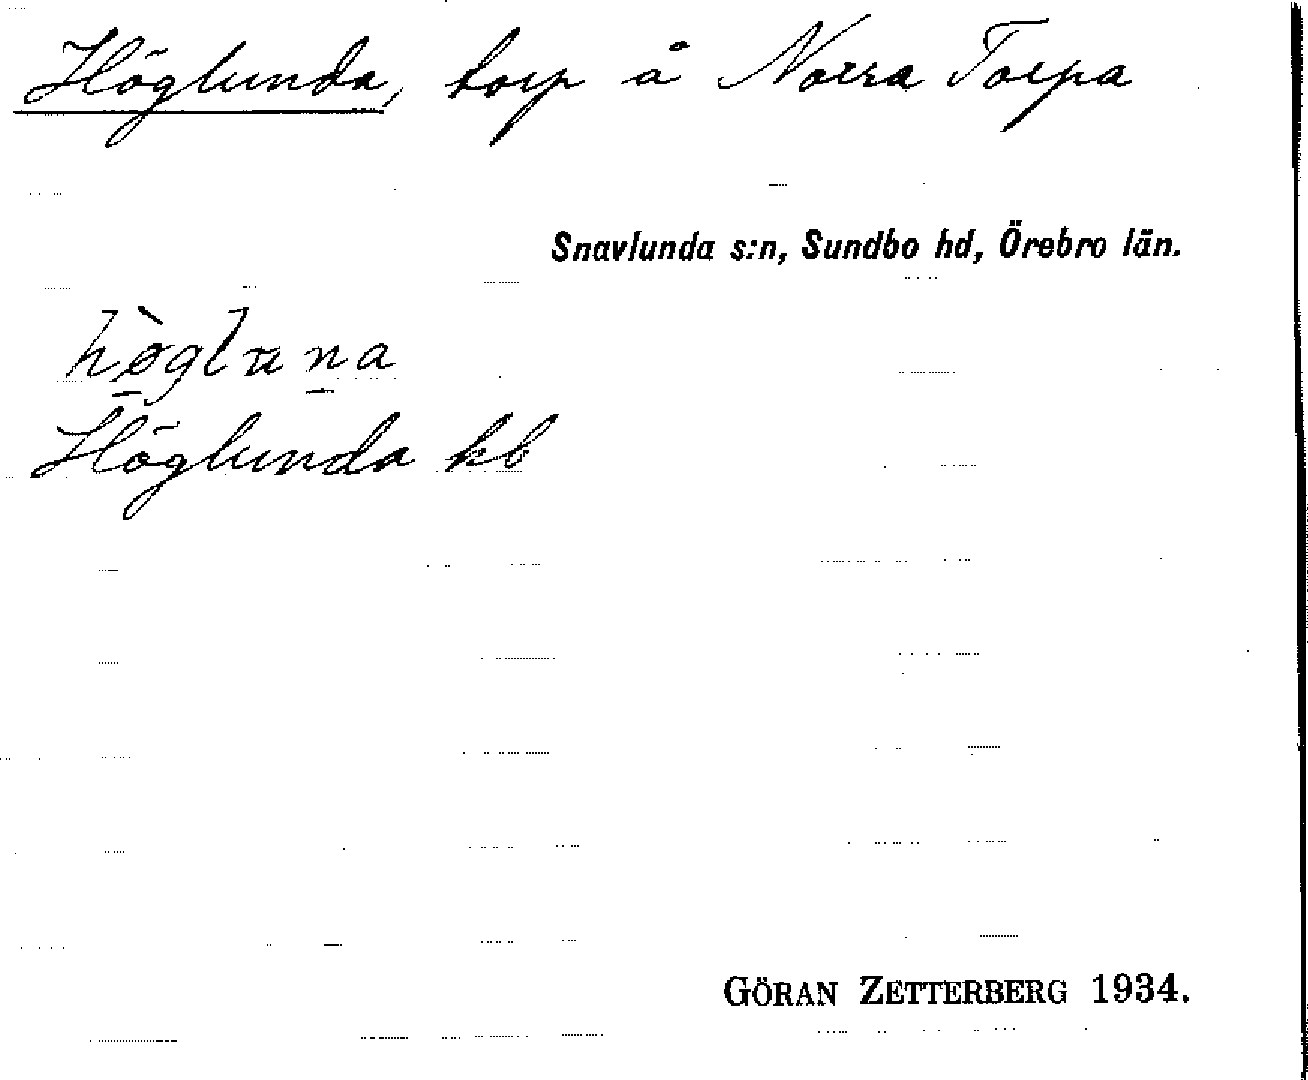 Höglunda, torp å Norra Torpa
Snavlunda s:n, Sundbo hd, Örebro län.
hø̀gluna
Höglunda kb
GÖRAN ZETTERBERG 1934.